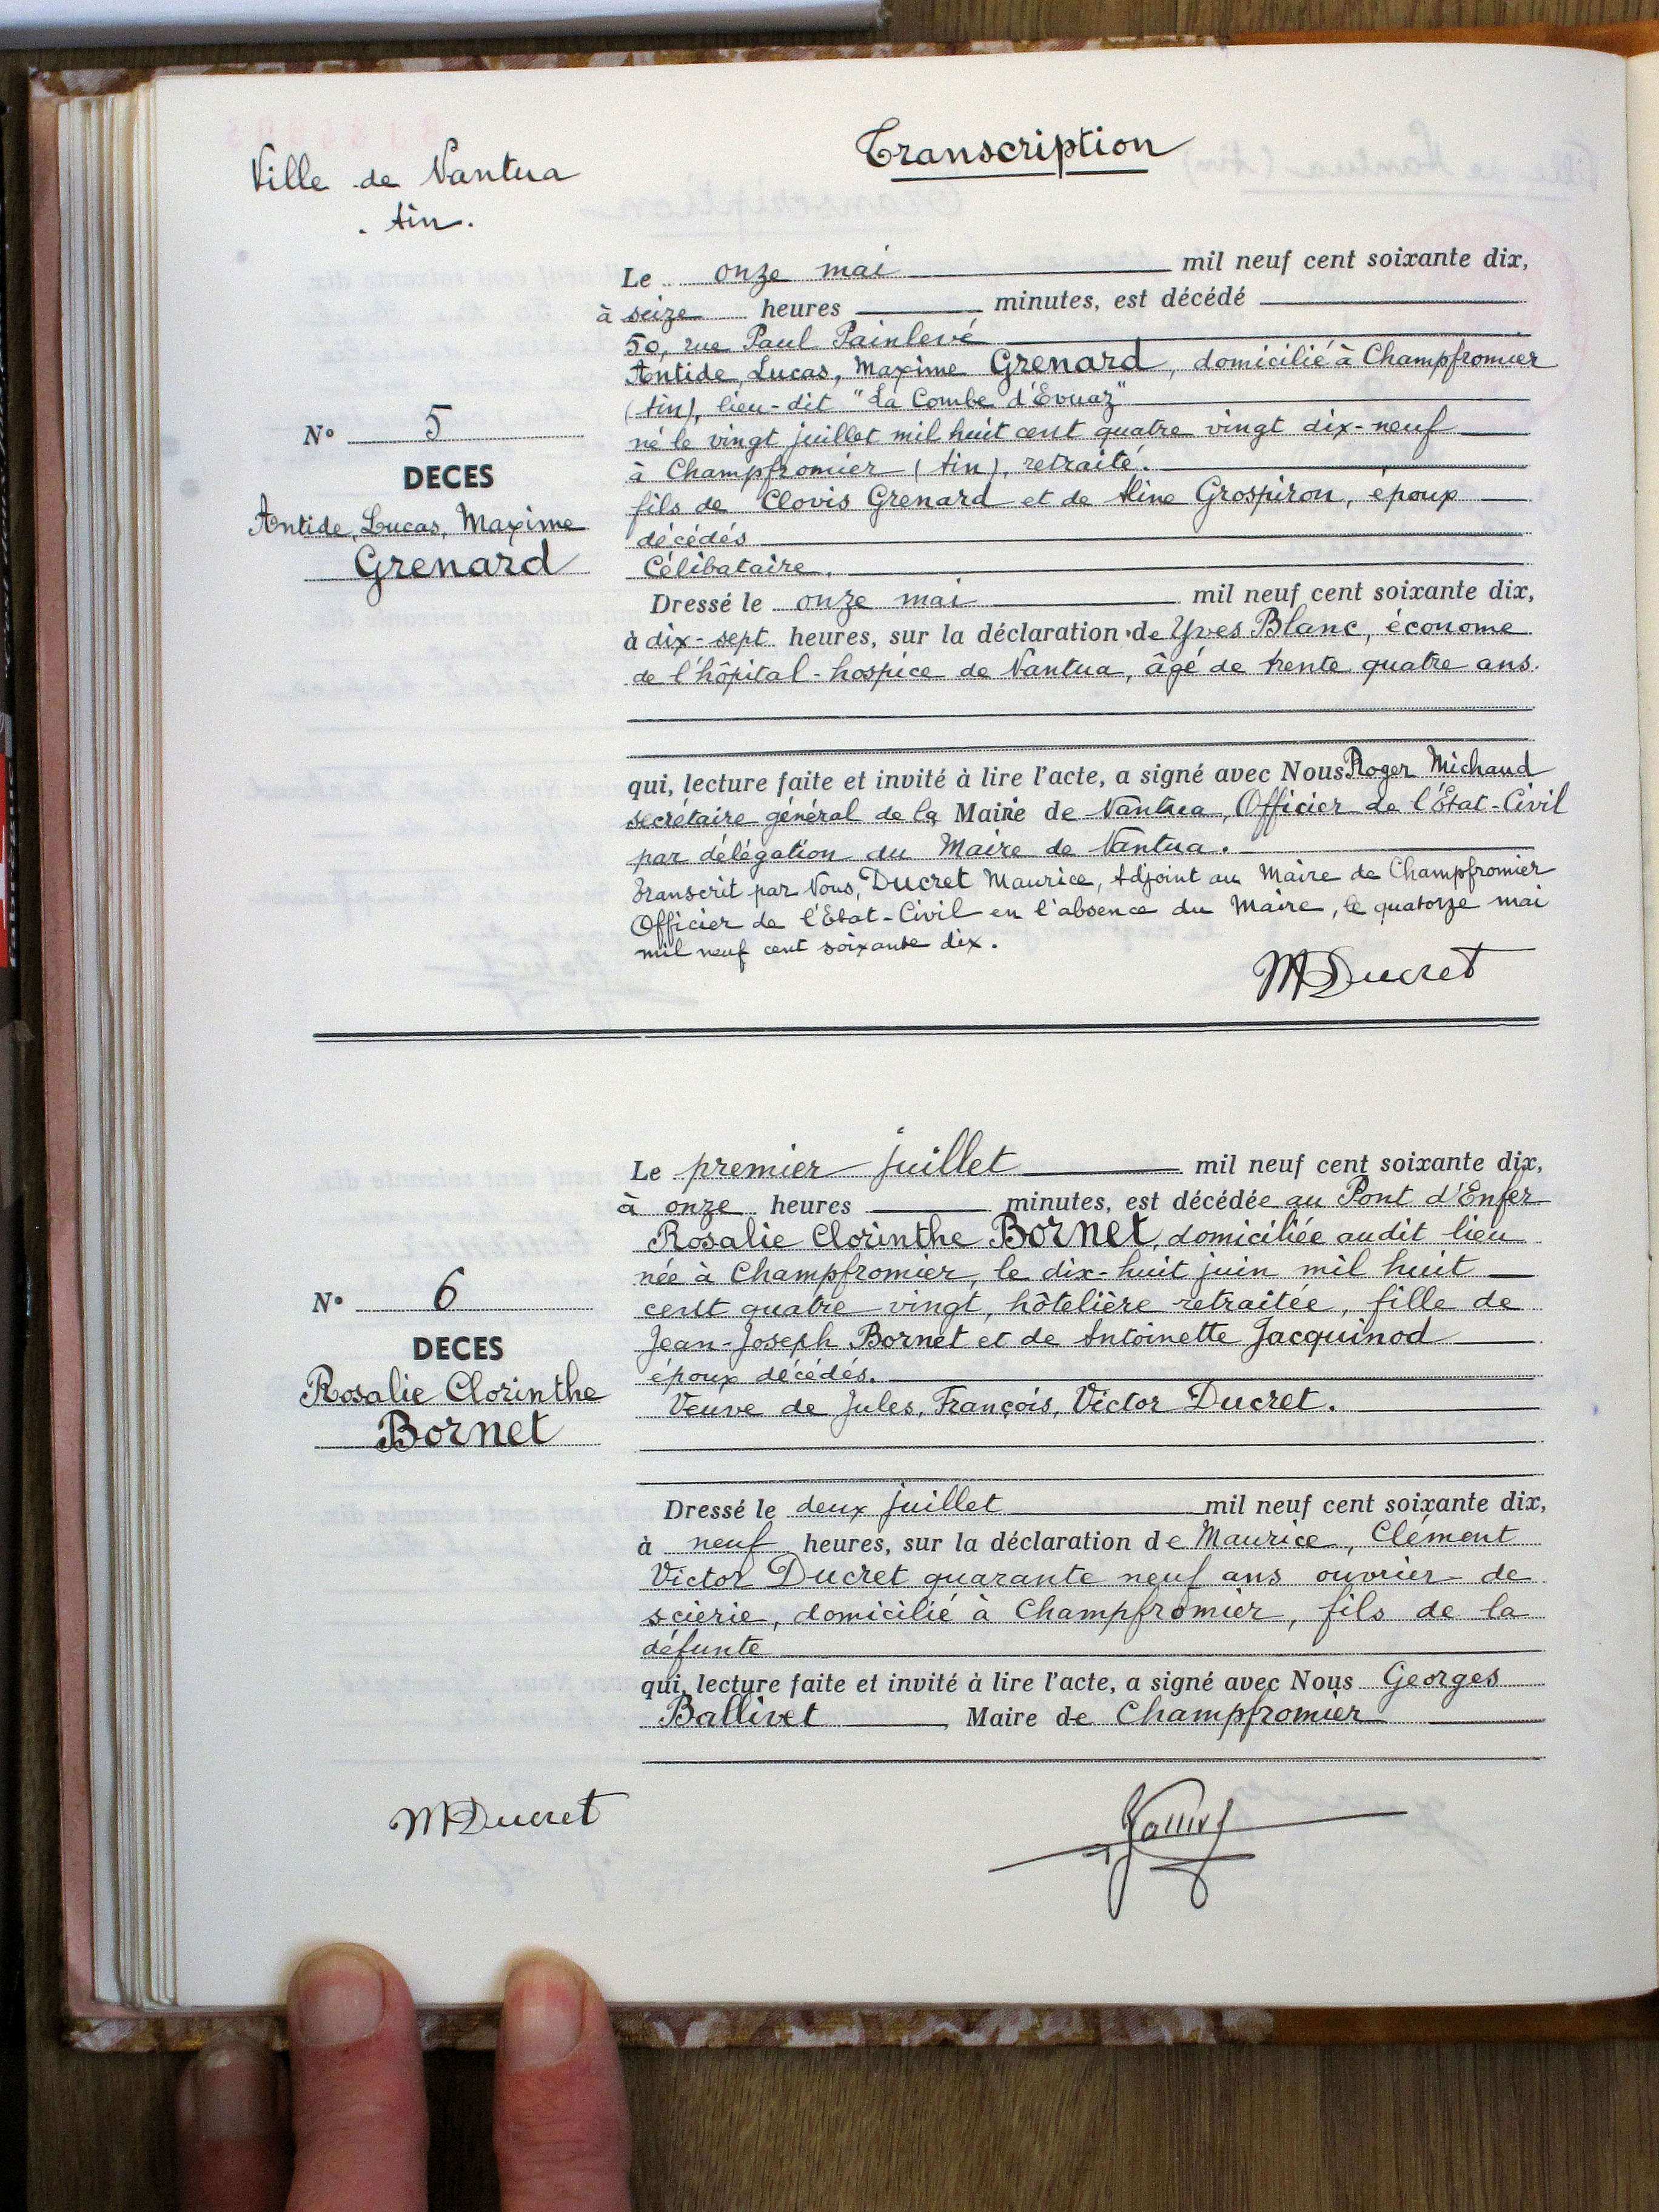 Ville de Nantua
Ain.
Transcription
Le onze mai mil neuf cent soixante dix,
à seize heures minutes, est décédé
50, rue Paul Painlevé
Antide, Lucas, Maxime Grenard, domicilié à Champfromier
(Ain), lieu-dit "La Combe d'Evuaz"
né le vingt juillet mil huit cent quatre vingt dix-neuf
à Champfromier (Ain), retraité.
fils de Clovis Grenard et de Aline Grospiron, époux
décédés
Célibataire.
Dressé le onze mai mil neuf cent soixante dix,
à dix-sept heures, sur la déclaration de Yves Blanc, économe
de l'hôpital-hospice de Nantua, âgé de trente quatre ans.
qui, lecture faite et invité à lire l'acte, a signé avec Nous Roger Michaud
secrétaire général de la Mairie de Nantua, Officier de l'État-Civil
par délégation du Maire de Nantua.
Transcrit par Nous, Ducret Maurice, Adjoint au Maire de Champfromier
Officier de l'Etat-Civil en l'absence du Maire, le quatorze mai
mil neuf cent soixante dix.
MDucret
N° 5
DECES
Antide, Lucas, Maxime
Grenard
Le premier juillet mil neuf cent soixante dix,
à onze heures minutes, est décédée au Pont d'Enfer
Rosalie Clorinthe Bornet, domiciliée audit lieu
née à Champfromier, le dix-huit juin mil huit
cent quatre vingt, hôtelière retraitée, fille de
Jean-Joseph Bornet et de Antoinette Jacquinod
époux décédés.
Veuve de Jules, François, Victor Ducret.
Dressé le deux juillet mil neuf cent soixante dix,
à neuf heures, sur la déclaration de Maurice, Clément
Victor Ducret quarante neuf ans ouvrier de
scierie, domicilié à Champfromier, fils de la
défunte
qui, lecture faite et invité à lire l'acte, a signé avec Nous Georges
Ballivet Maire de Champfromier
N° 6
DECES
Rosalie Clorinthe
Bornet
MDucret